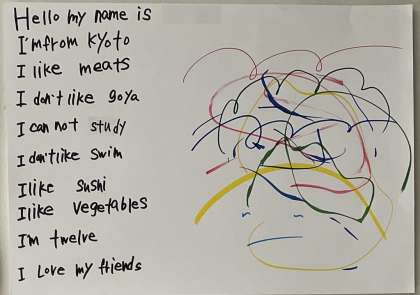 Hello my name is
I'm from Kyoto
I like meats
I don't like goya
I can not study
I don't like swim
I like sushi
I like vegetables
I'm twelve
I Love my friends